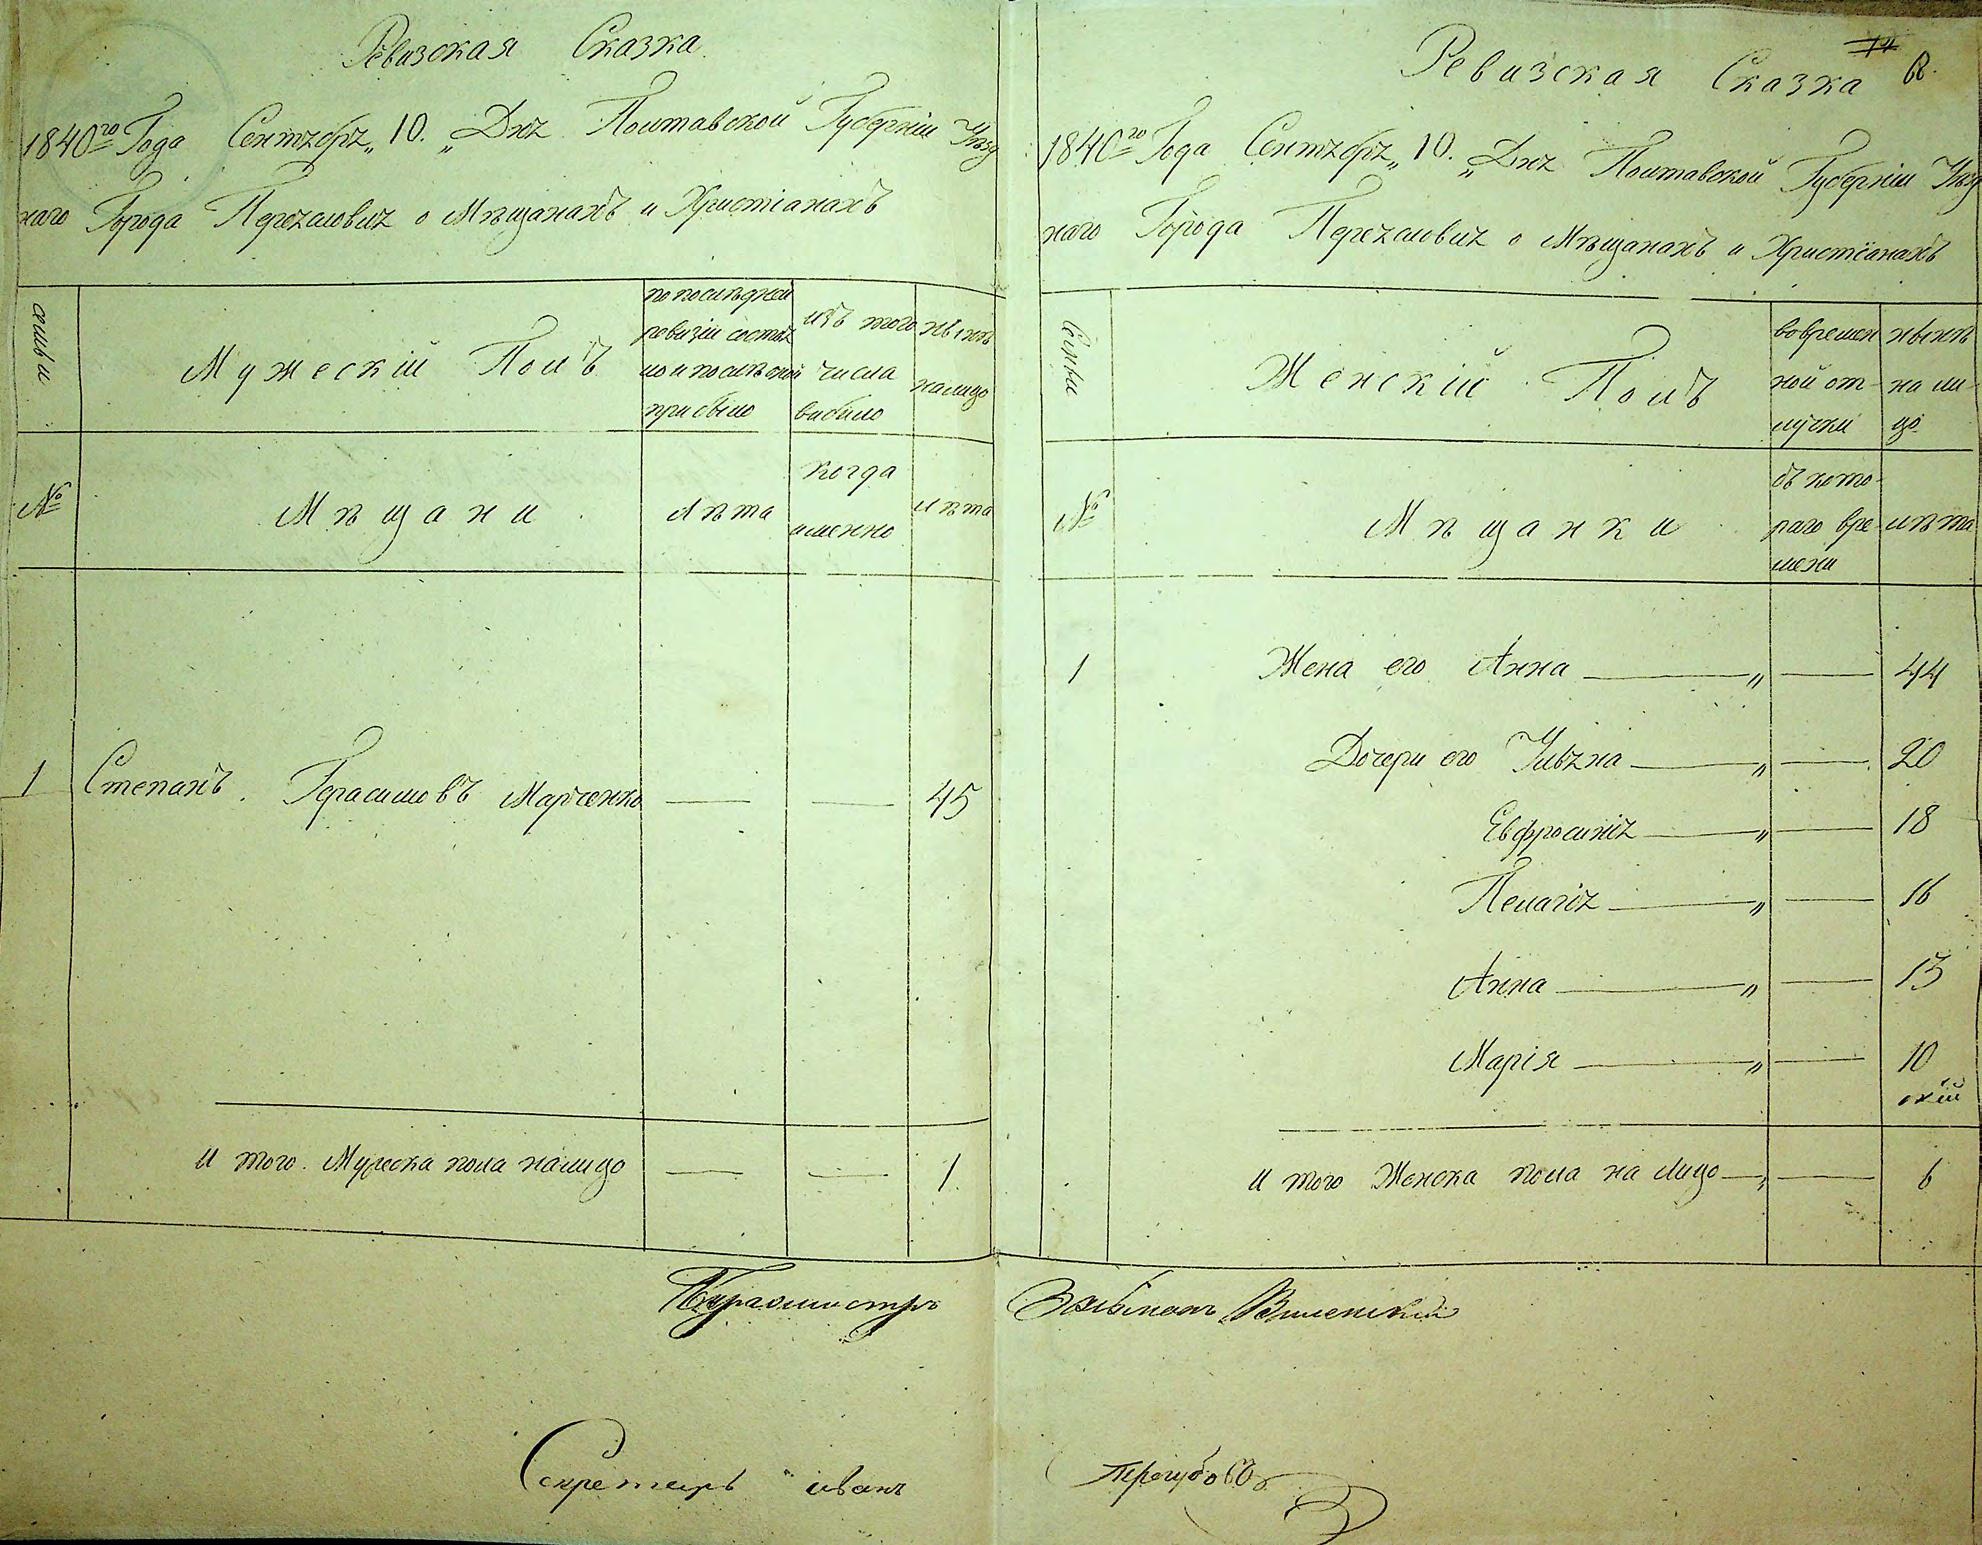 Ревизская Сказка
1840го Года Сентября „10. „ Дня Полтавской Губерніи Уѣзд
наго Города Переяславия о Мѣщанахъ и Христіанахъ
семьи
Мужескій Полъ
по послѣдней
ревизіи состоя
ло и послѣ оной
прибыло
изъ того
числа
выбыло
нынѣ
налицо
№
Мѣщани
лѣта
когда
именно
лѣта
1 Степанъ Герасимовъ Марченко — — 45
и того Мужеска пола налицо — — 1
12 6.
Ревизская Сказка
1840го Года Сентября „10. „ Дня Полтавской Губерніи Уѣзд
наго Города Переяславия о Мѣщанахъ и Христіанахъ
Семьи
Женскій Полъ
во времен
ной от-
лучки
нынѣ
на ли-
цо
№
Мѣщанки
съ кото-
раго вре-
мени
лѣта
1 Жена его Анна — „ — 44
Дочери его Ульяна — „ — 20
Евфросинія — „ — 18
Пелагія — „ — 16
Анна — „ — 13
Марія — „ — 10
и того Женска пола на лицо — „ — 6
Бургомистръ Виленскій
Секретарь Иванъ